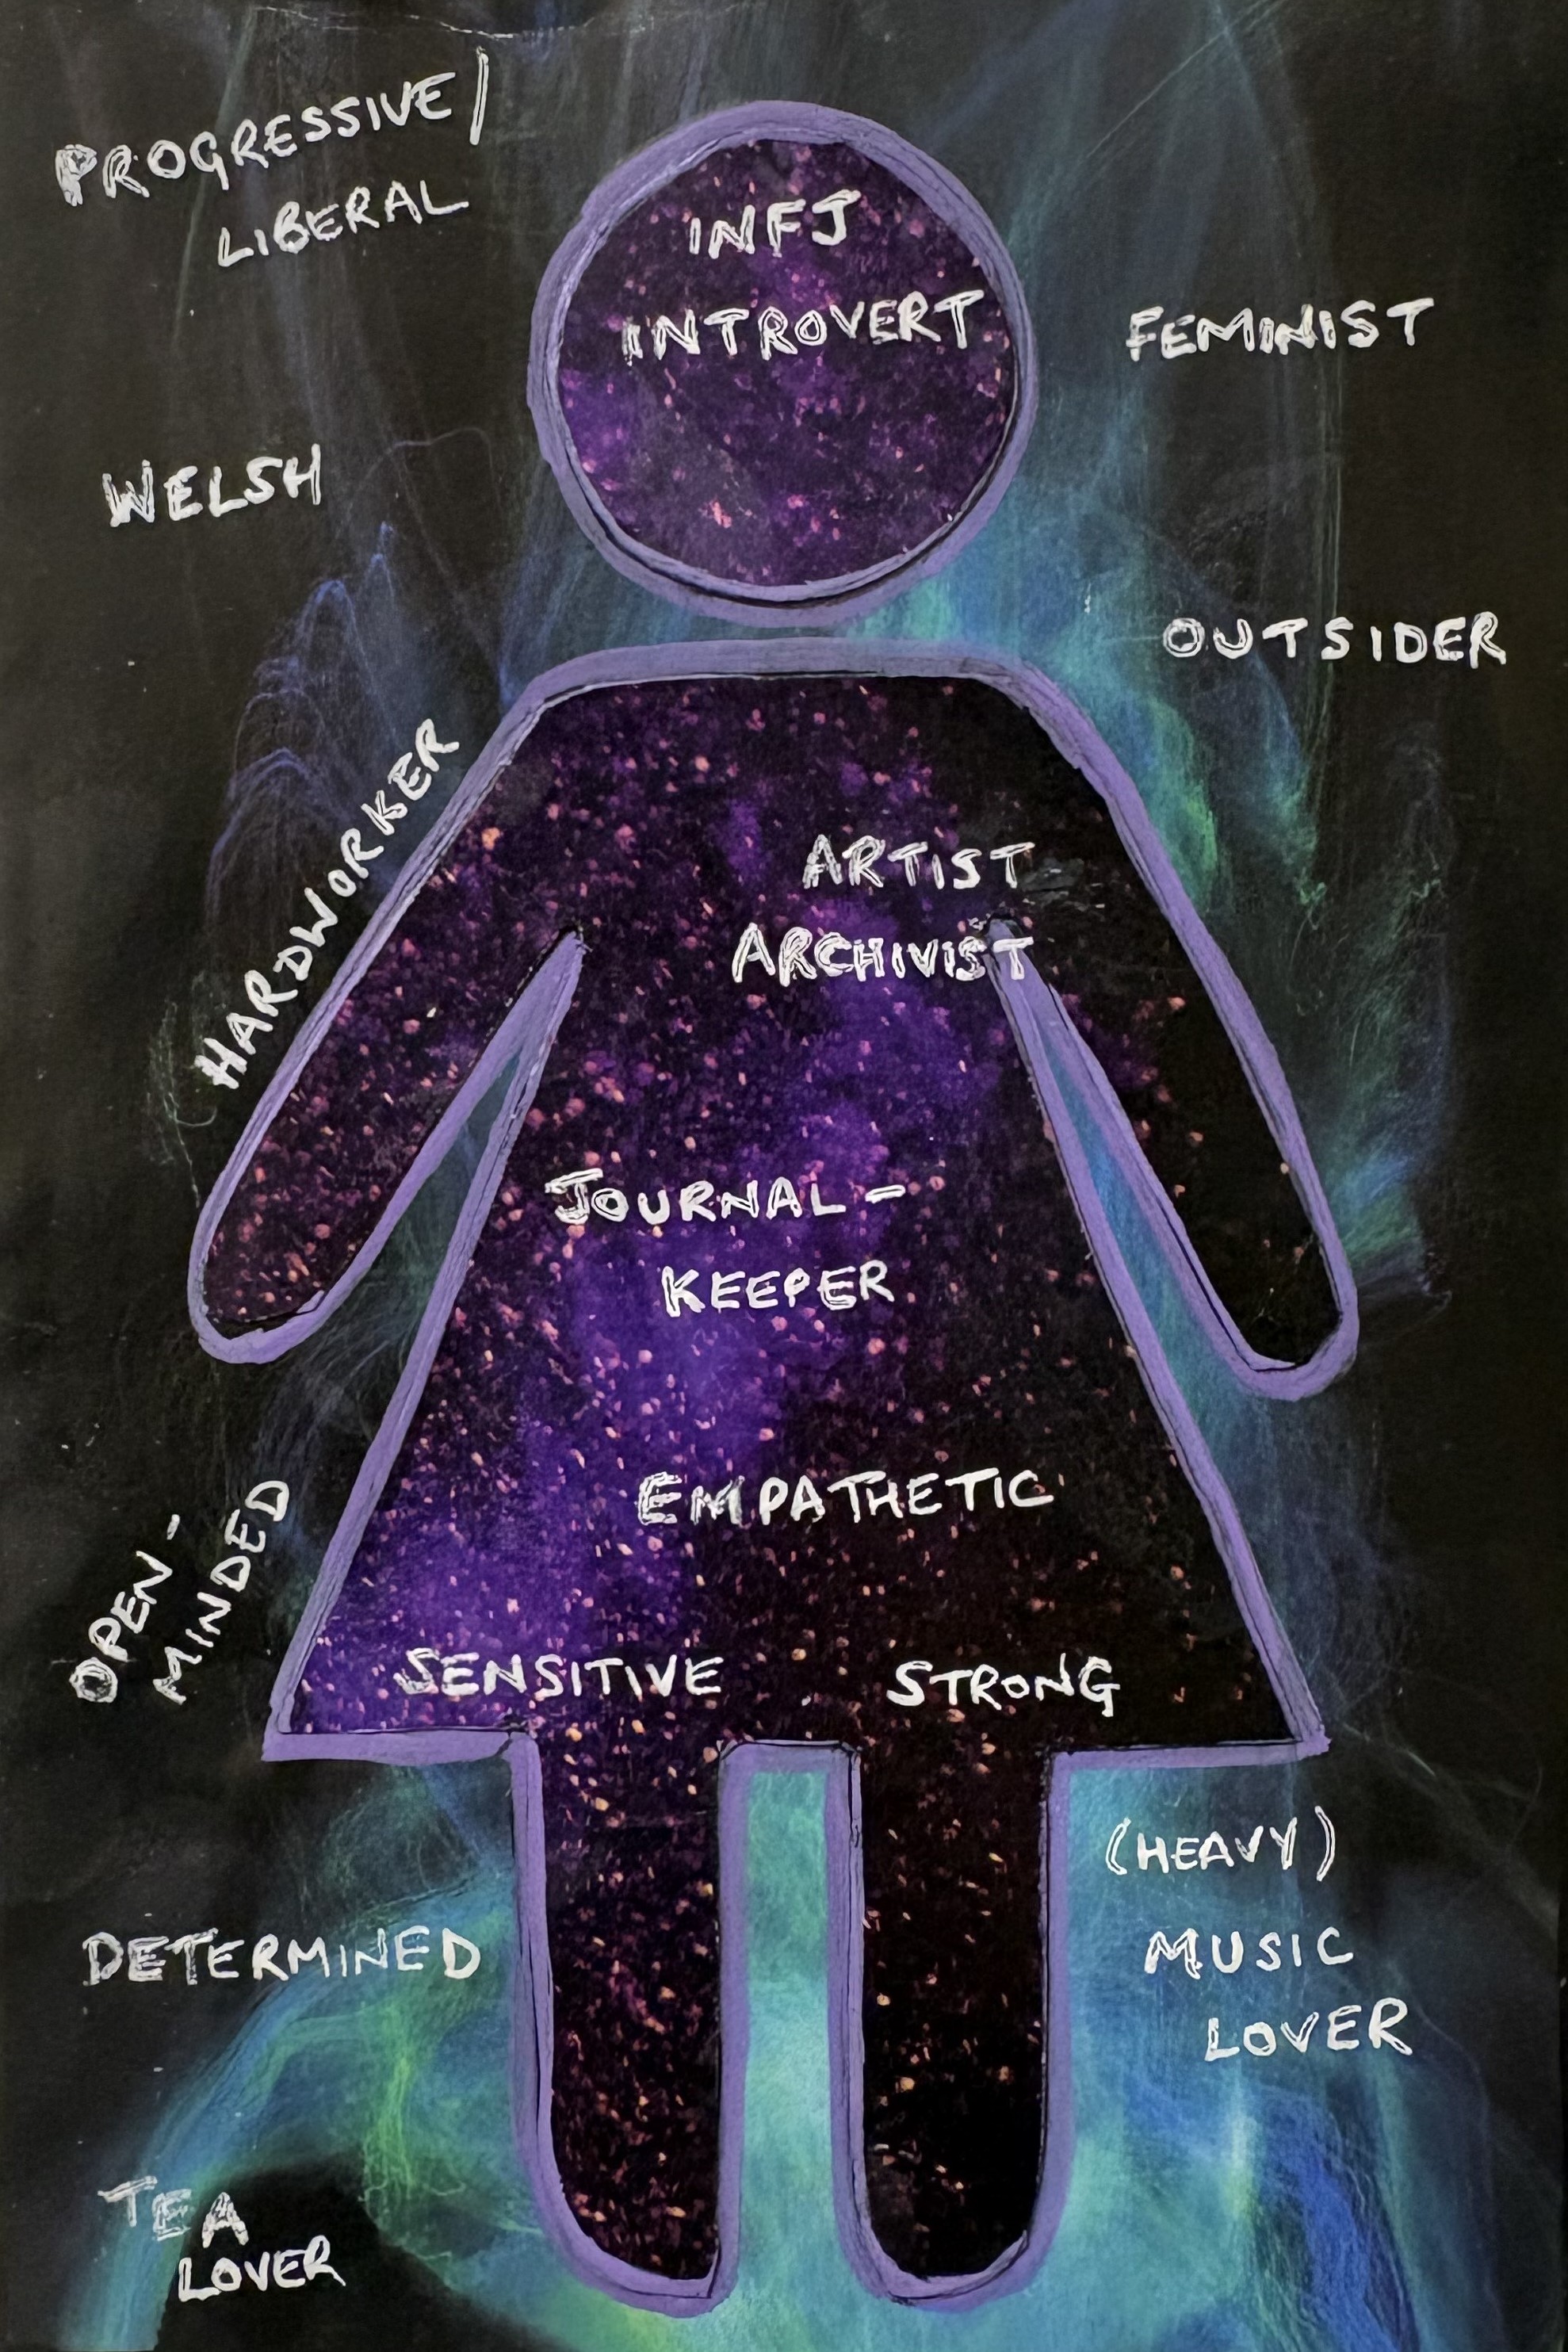 PROGRESSIVE/
LIBERAL
INFJ
INTROVERT
FEMINIST
WELSH
OUTSIDER
HARDWORKER
ARTIST
ARCHIVIST
JOURNAL-
KEEPER
EMPATHETIC
OPEN-
MINDED
SENSITIVE
STRONG
(HEAVY)
MUSIC
LOVER
DETERMINED
TEA
LOVER